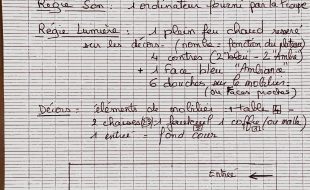 Régie Son : 1 ordinateur fourni par la troupe
Régie Lumière : - 1 plein feu chaud resserré
sur les décors - (nombre = fonction du plateau)
4 contres (2 "bleu" - 2 "Ambre"
+ 1 Face bleu "Ambiance"
6 douches sur le mobilier
(ou Faces proches)
Décors : éléments de mobilier : 1 table
2 chaises 1 fauteuil 1 coffre (ou malle)
1 entrée = fond cour
Entrée ←